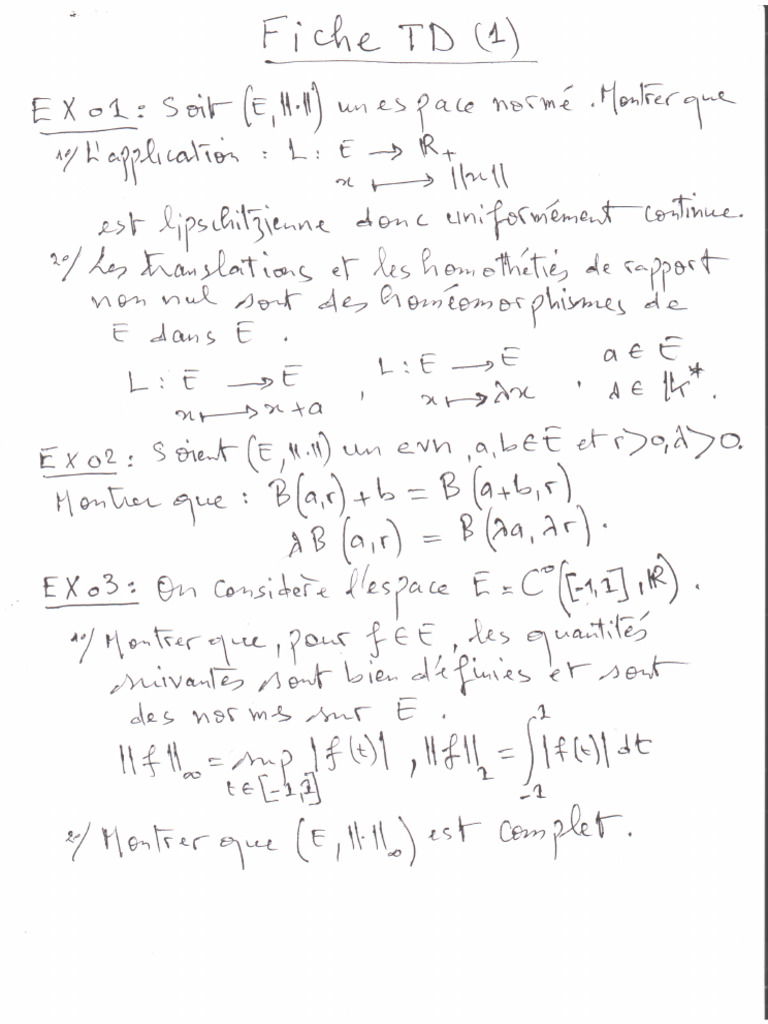 Fiche TD (1)
EX 01 : Soit (E, ||.||) un espace normé. Montrer que
1º/ L'application : L : E → R+
x ↦ ||x||
est lipschitzienne donc uniformément continue.
2º/ Les translations et les homothéties de rapport
non nul sont des homéomorphismes de
E dans E.
L : E → E , L : E → E . a ∈ E
x ↦ x+a x ↦ λx λ ∈ K*.
Ex 02 : Soient (E, ||.||) un evn, a, b ∈ E et r>0, λ>0.
Montrer que : B(a,r)+b = B(a+b,r)
λB(a,r) = B(λa, λr).
EX 03 : On considère l'espace E = C⁰([-1,1], R).
1º/ Montrer que, pour f ∈ E, les quantités
suivantes sont bien définies et sont
des normes sur E.
||f||∞ = sup |f(t)| , ||f||₁ = ∫₋₁¹ |f(t)| dt
t ∈ [-1,1]
2º/ Montrer que (E, ||.||∞) est complet.